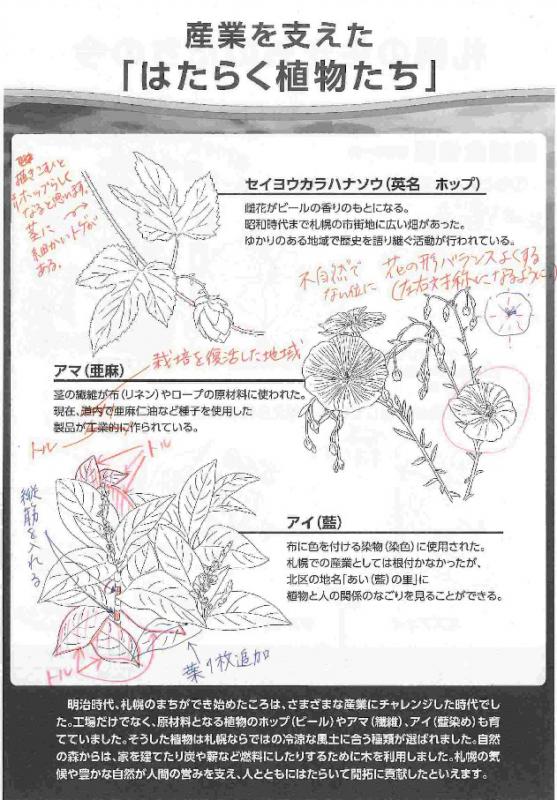 産業を支えた
「はたらく植物たち」
描きこむと
ホップらしく
なると思います。
茎に
細かいトゲが
ある。
セイヨウカラハナソウ（英名　ホップ）
雌花がビールの香りのもとになる。
昭和時代まで札幌の市街地に広い畑があった。
ゆかりのある地域で歴史を語り継ぐ活動が行われている。
不自然で
ない位に
花の形バランスよくする
(左右対称になるように)
栽培を復活した地域
アマ（亜麻）
茎の繊維が布（リネン）やロープの原材料に使われた。
現在、道内で亜麻仁油など種子を使用した
製品が工業的に作られている。
トル
トル
縦筋を入れる
アイ（藍）
布に色を付ける染物（染色）に使用された。
札幌での産業としては根付かなかったが、
北区の地名「あい（藍）の里」に
植物と人の関係のなごりを見ることができる。
トル
葉1枚追加
明治時代、札幌のまちができ始めたころは、さまざまな産業にチャレンジした時代でし
た。工場だけでなく、原材料となる植物のホップ（ビール）やアマ（繊維）、アイ（藍染め）も育
てていました。そうした植物は札幌ならではの冷涼な風土に合う種類が選ばれました。自然
の森からは、家を建てたり炭や薪など燃料にしたりするために木を利用しました。札幌の気
候や豊かな自然が人間の営みを支え、人とともにはたらいて開拓に貢献したといえます。